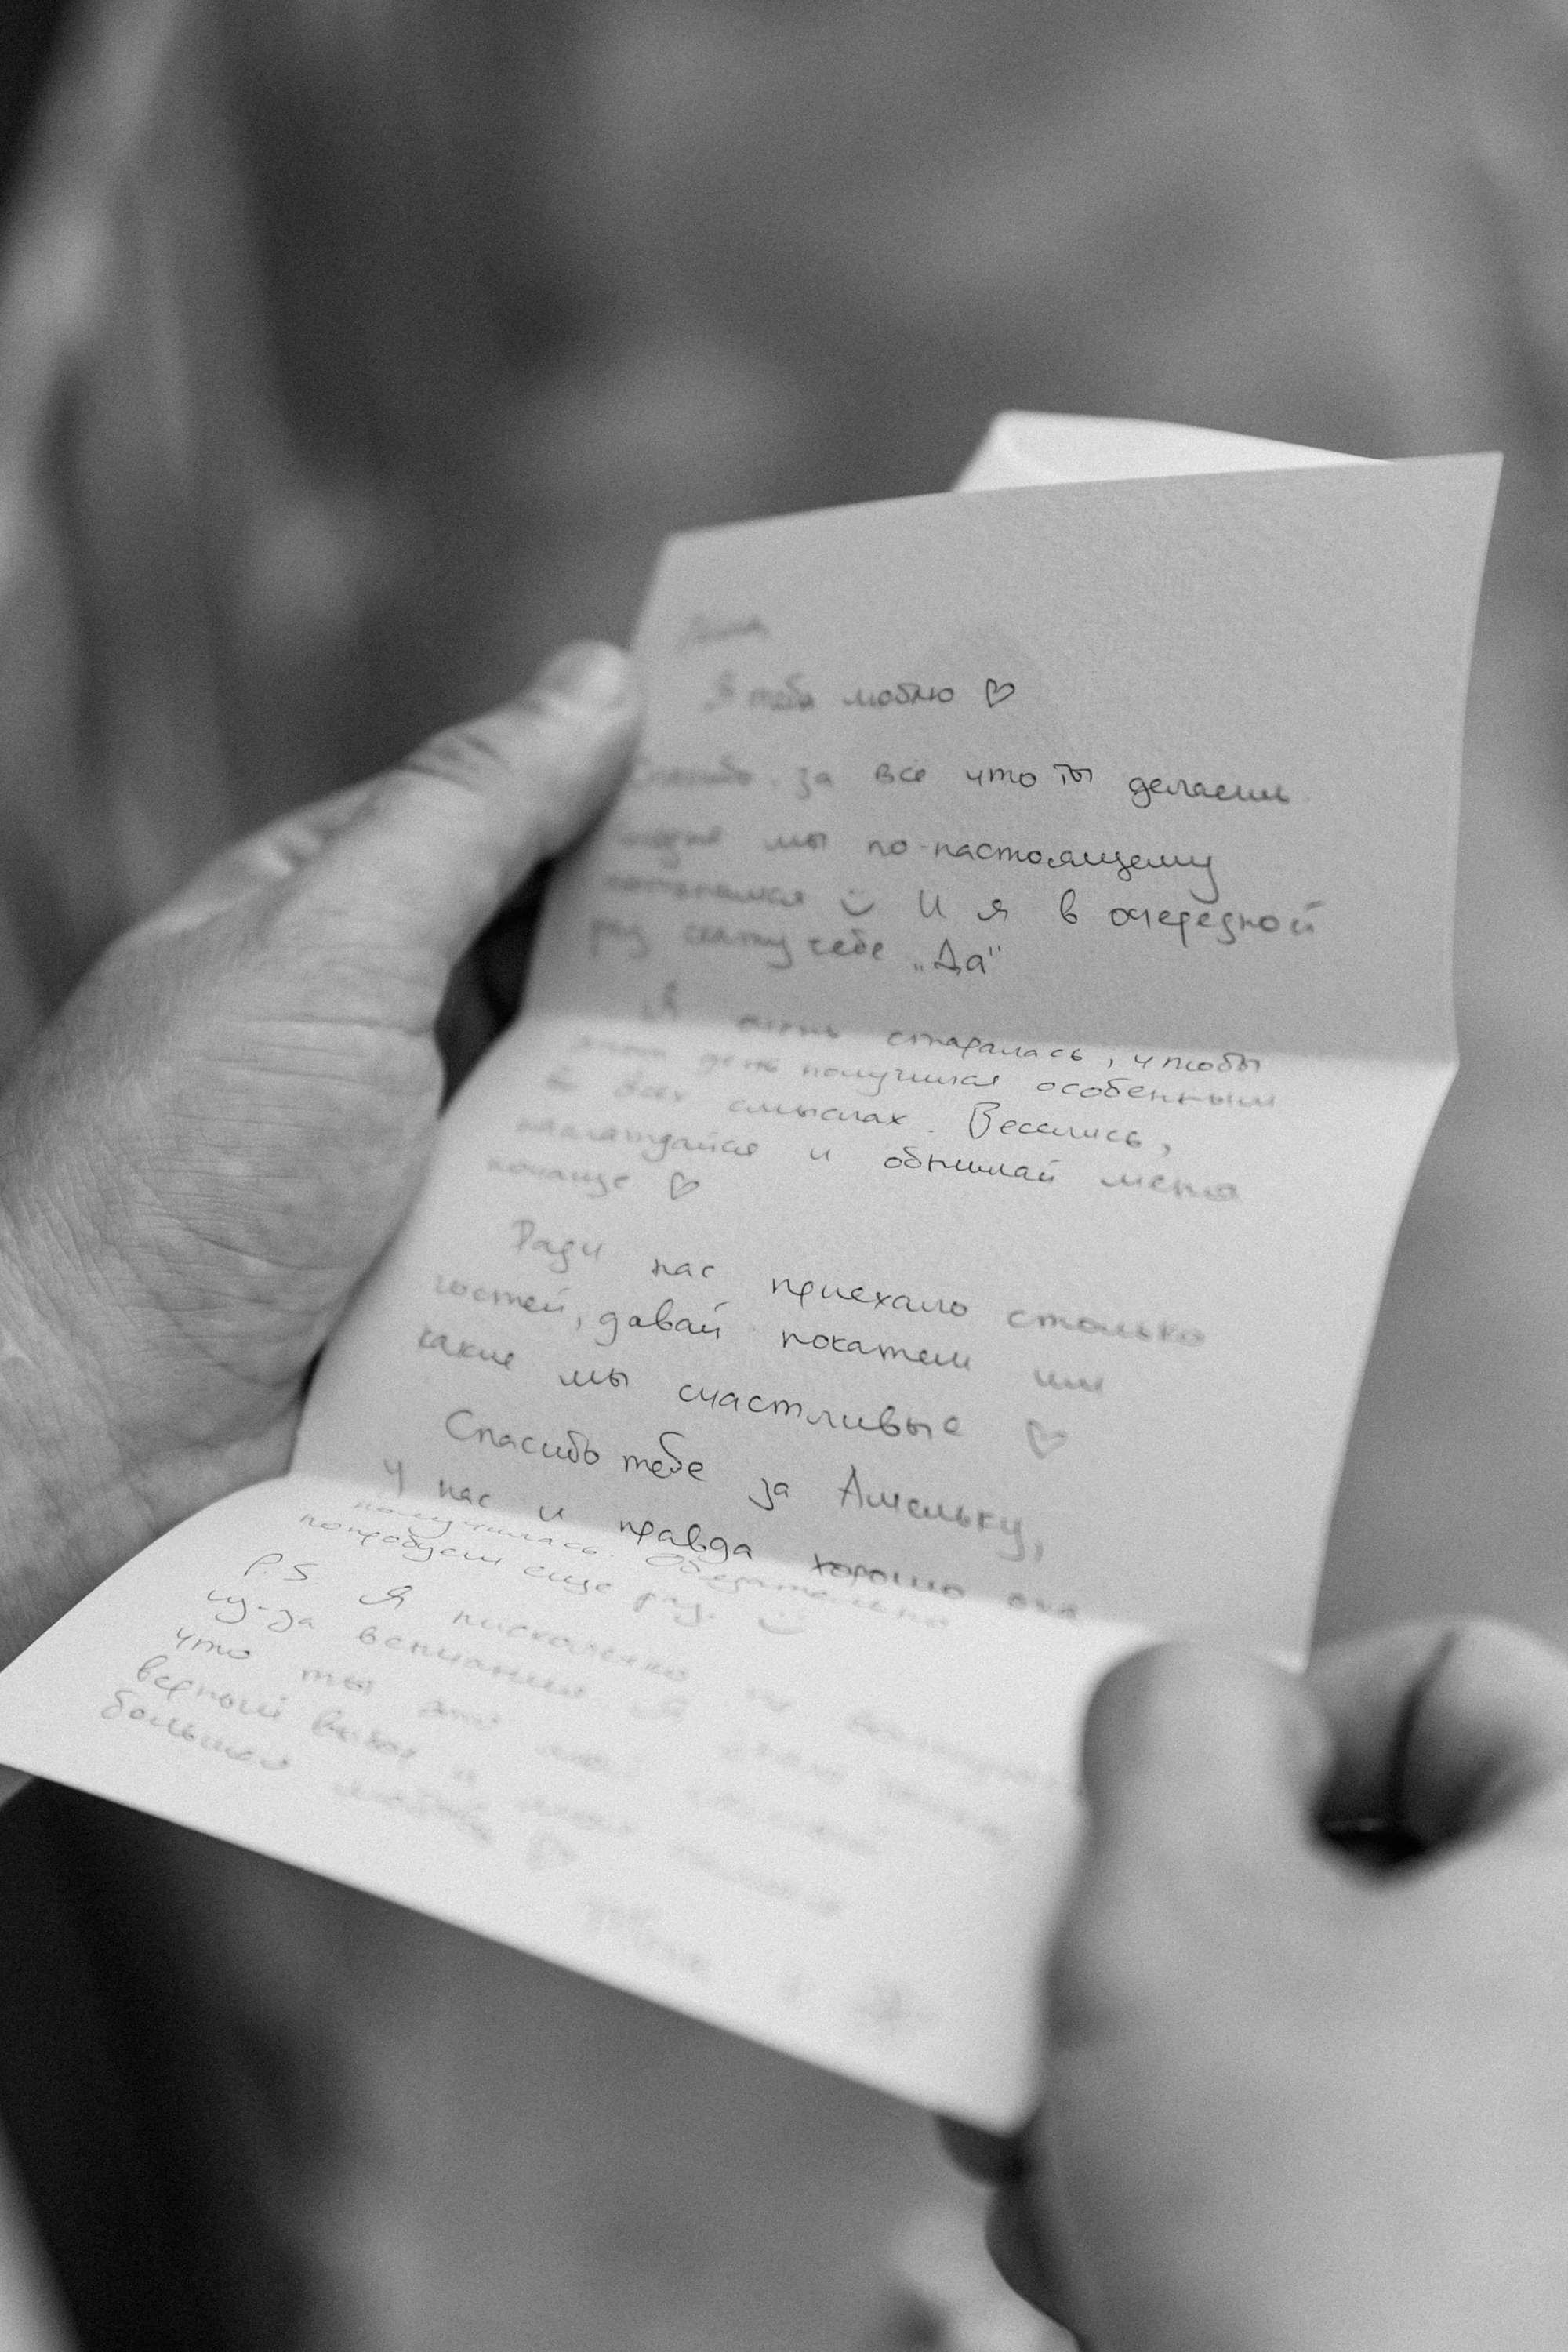 Я тебя люблю ♡
Спасибо за все что ты делаешь
мы по-настоящему
поженимся И я в очередной
раз скажу тебе „Да"
Я очень старалась, чтобы
этот день получился особенным
во всех смыслах. Веселись,
наслаждайся и обнимай меня
почаще ♡
Ради нас приехало столько
гостей, давай покажем им
какие мы счастливые ♡
Спасибо тебе за Амельку,
У нас и правда хорошо она
получилась. Обязательно
попробуем еще раз.
P.S. Я нисколечко не
из-за венчания. Я
что ты это мой
верный выбор и
большая любовь ♡